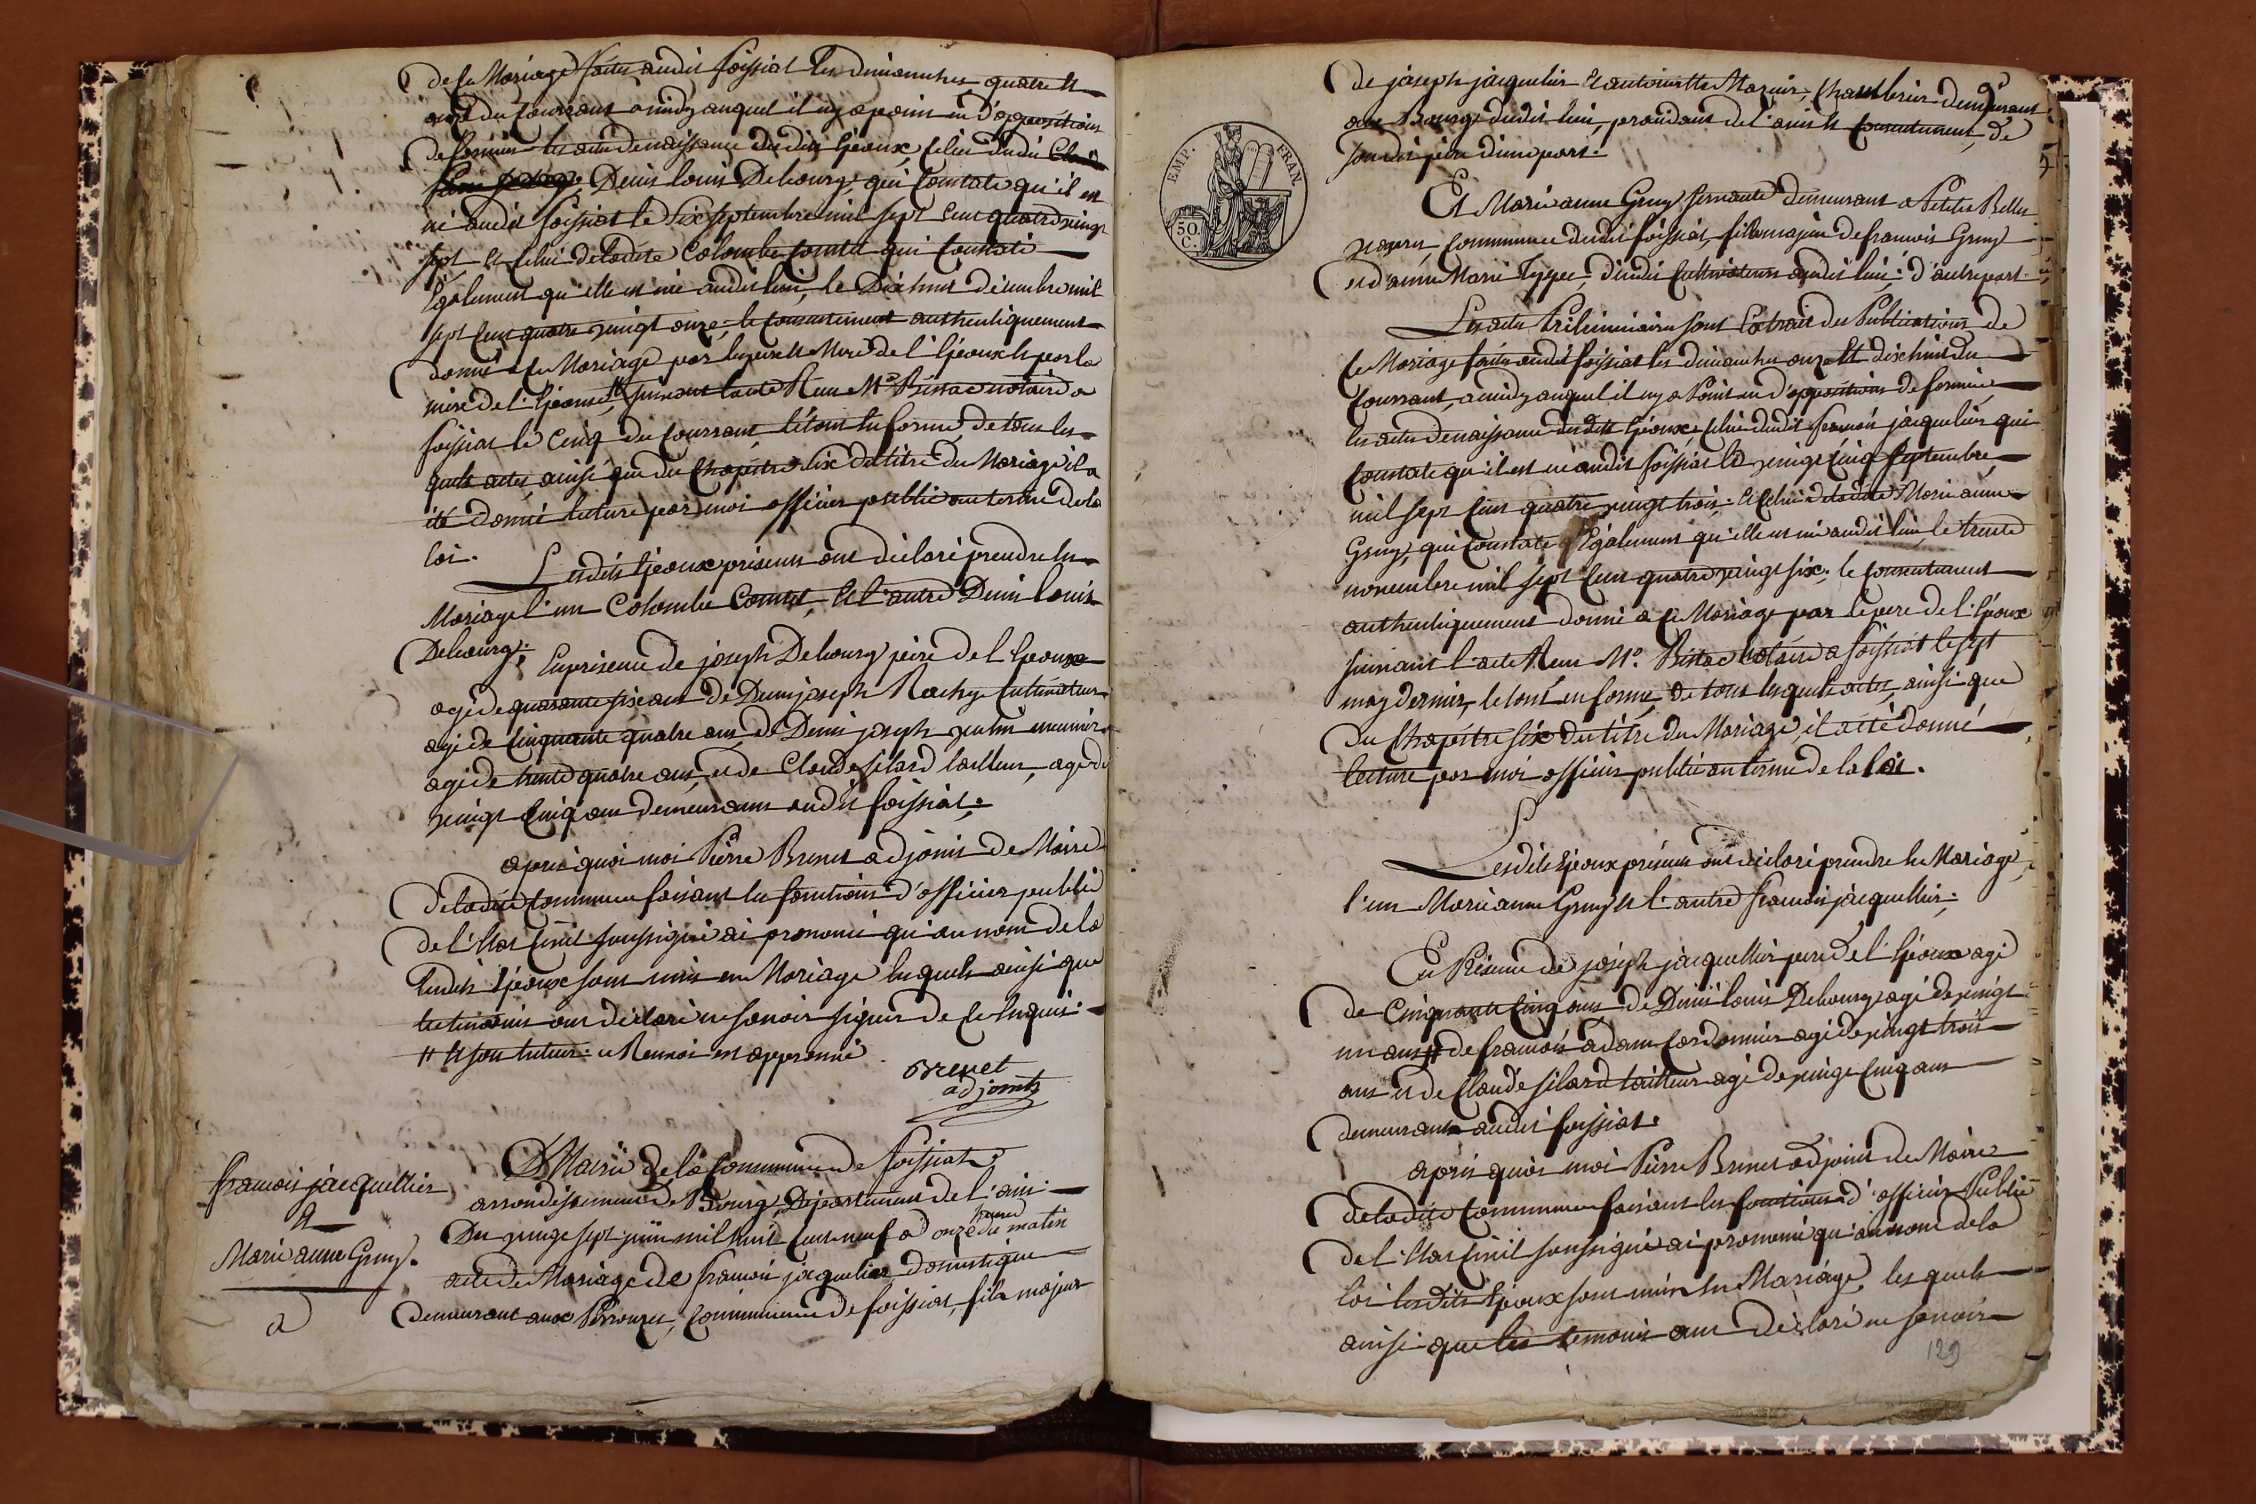 de ce Mariage faites audit foissiat les dimanches quatre et
onze du Courrant a midy auquel il ny a point eu d'opposition
de formée les actes de naissance desdits Epoux, Celui dudit
Denis louis Debourg, qui Constate qu'il est
né audit foissiat le Six septembre mil sept Cent quatre vingt
sept et Celui de ladite Colombe Comtet qui Constate
Egalement qu'elle est née audit lieu, le Dix huit décembre mil
sept Cent quatre vingt onze; le Consentement authentiquement
donné a ce Mariage par le pere et Mere de l'Epoux et par la
mere de l'Epouse, # suivant lacte Recu Me notaire a
foissiat le Cinq du Courrant, le tout en forme, de tous les
quels actes, ainsi que du Chapitre Six du titre du Mariage il a
été donné lecture par moi officier public au terme de la
loi. Lesdits Epoux présents ont déclaré prendre en
Mariage l'un Colombe Comtet, et l'autre Denis louis
Debourg.
En présence de joseph Debourg pere de l'Epoux
agé de quarante six ans de Denis joseph Cultivateur
agé de Cinquante quatre ans, de Denis joseph
agé de trente quatre ans, et de Claude tailleur, agé de
vingt Cinq ans demeurants audit foissiat.
apres quoi moi Pierre Brenet adjoint du Maire
de ladite Commune faisant les fonctions d'officier public
de l'état Civil soussigné ai prononcé qu'au nom de la
lesdits Epoux sont unis en Mariage lesquels ainsi que
les témoins ont déclaré ne savoir signer de ce Enquis.
# et son tuteur: ce Renvoi est approuvé
Brenet
adjoint
françois jacquellier
&
Marie anne Gruy.
Mairie de la Commune de foissiat
arrondissement de Bourg, Departement de l'ain.
Du vingt sept juin mil huit Cent neuf a onze heures du matin
acte de Mariage de françois jaquelier domestique
demeurant aux Commune de foissiat, fils majeur
EMP. FRAN.
50. C.
de joseph jaquelier et antoinette demeurant
au Bourg dudit lieu, procedant de l'avis et Consentement de
son dit pere d'une part.
Et Marie anne Gruy servante demeurant a Petites
Commune dudit foissiat, fille majeure de françois Gruy
et d'anne Marie dudit Cultivateurs audit lieu: d'autre part.
Les actes Préliminaires sont Extrait des Publications de
Ce Mariage faites audit foissiat les dimanches onze et dix huit du
Courrant, a midy auquel il ny a Point eu d'opposition de formée,
les actes de naissance desdits Epoux, Celui dudit françois jaquelier qui
Constate qu'il est né audit foissiat le vingt Cinq septembre
mil sept Cent quatre vingt trois; et Celui de ladite Marie anne
Gruy, qui Constate Egalement qu'elle est née audit lieu, le trente
novembre mil sept Cent quatre vingt six; le Consentement
authentiquement donné a ce Mariage par le pere de l'Epoux
suivant l'acte Recu Me. Notaire a foissiat le sept
may dernier, le tout en forme, de tous lesquels actes, ainsi que
du Chapitre Six du titre du Mariage, il a été donné
lecture par moi officier public au terme de la loi.
Lesdits Epoux présents ont déclaré prendre en Mariage,
l'un Marie anne Gruy et l'autre françois jacquellier.
En Présence de joseph jacquellier pere de l'Epoux agé
de Cinquante Cinq ans, de Denis louis Debourg agé de vingt
un ans de françois adam Cordonnier agé de vingt trois
ans et de Claude tailleur agé de vingt Cinq ans
demeurants audit foissiat.
apres quoi moi Pierre Brenet adjoint du Maire
de ladite Commune faisant les fonctions d'officier Public
de l'état Civil soussigné ai prononcé qu'au nom de la
loi lesdits Epoux sont unis en Mariage, les quels
ainsi que les témoins ont déclaré ne savoir
129